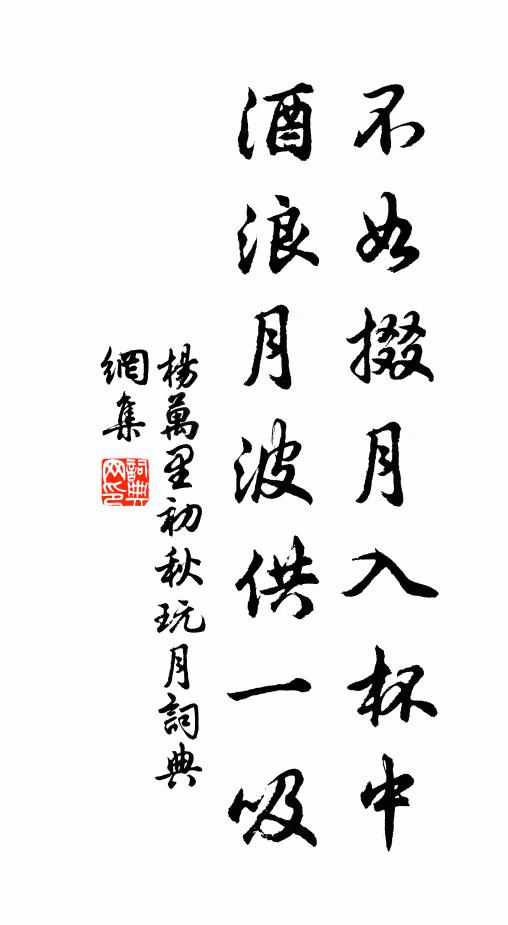 不如掇月入杯中
酒浪月波供一吸
楊萬里初秋玩月詞典
網集
詞典
网印